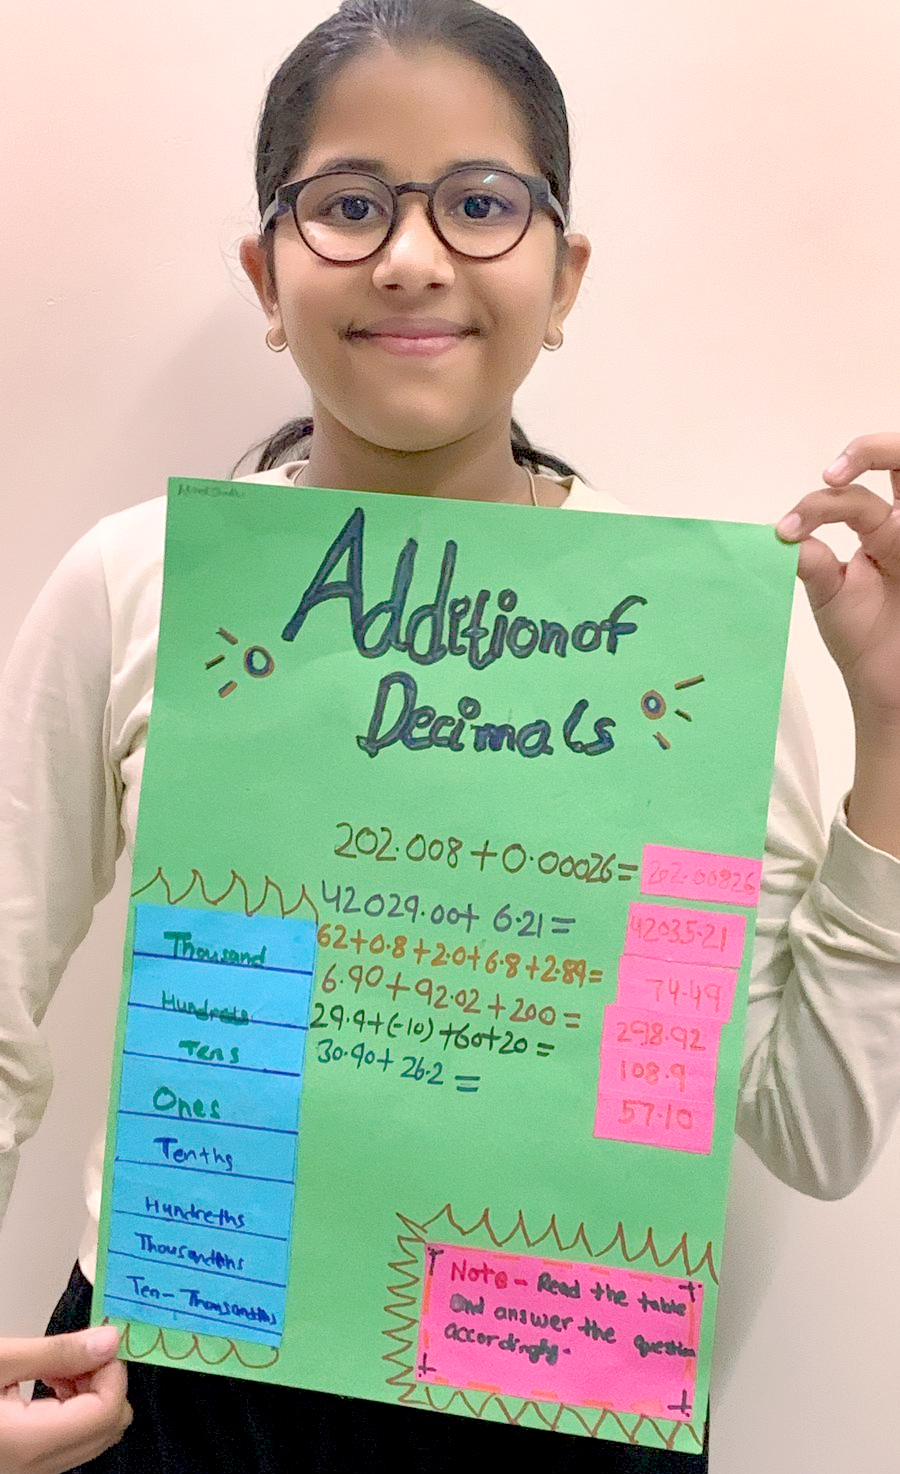 Addition of
Decimals
202.008 + 0.00026 = 202.00826
42029.00 + 6.21 = 42035.21
62 + 0.8 + 2.0 + 6.8 + 2.89 = 74.49
6.90 + 92.02 + 200 = 298.92
29.9 + (-10) + 60 + 20 = 108.9
30.90 + 26.2 = 57.10
Thousand
Hundreds
Tens
Ones
Tenths
Hundreths
Thousandths
Ten-Thousandths
Note - Read the table
and answer the question
accordingly.